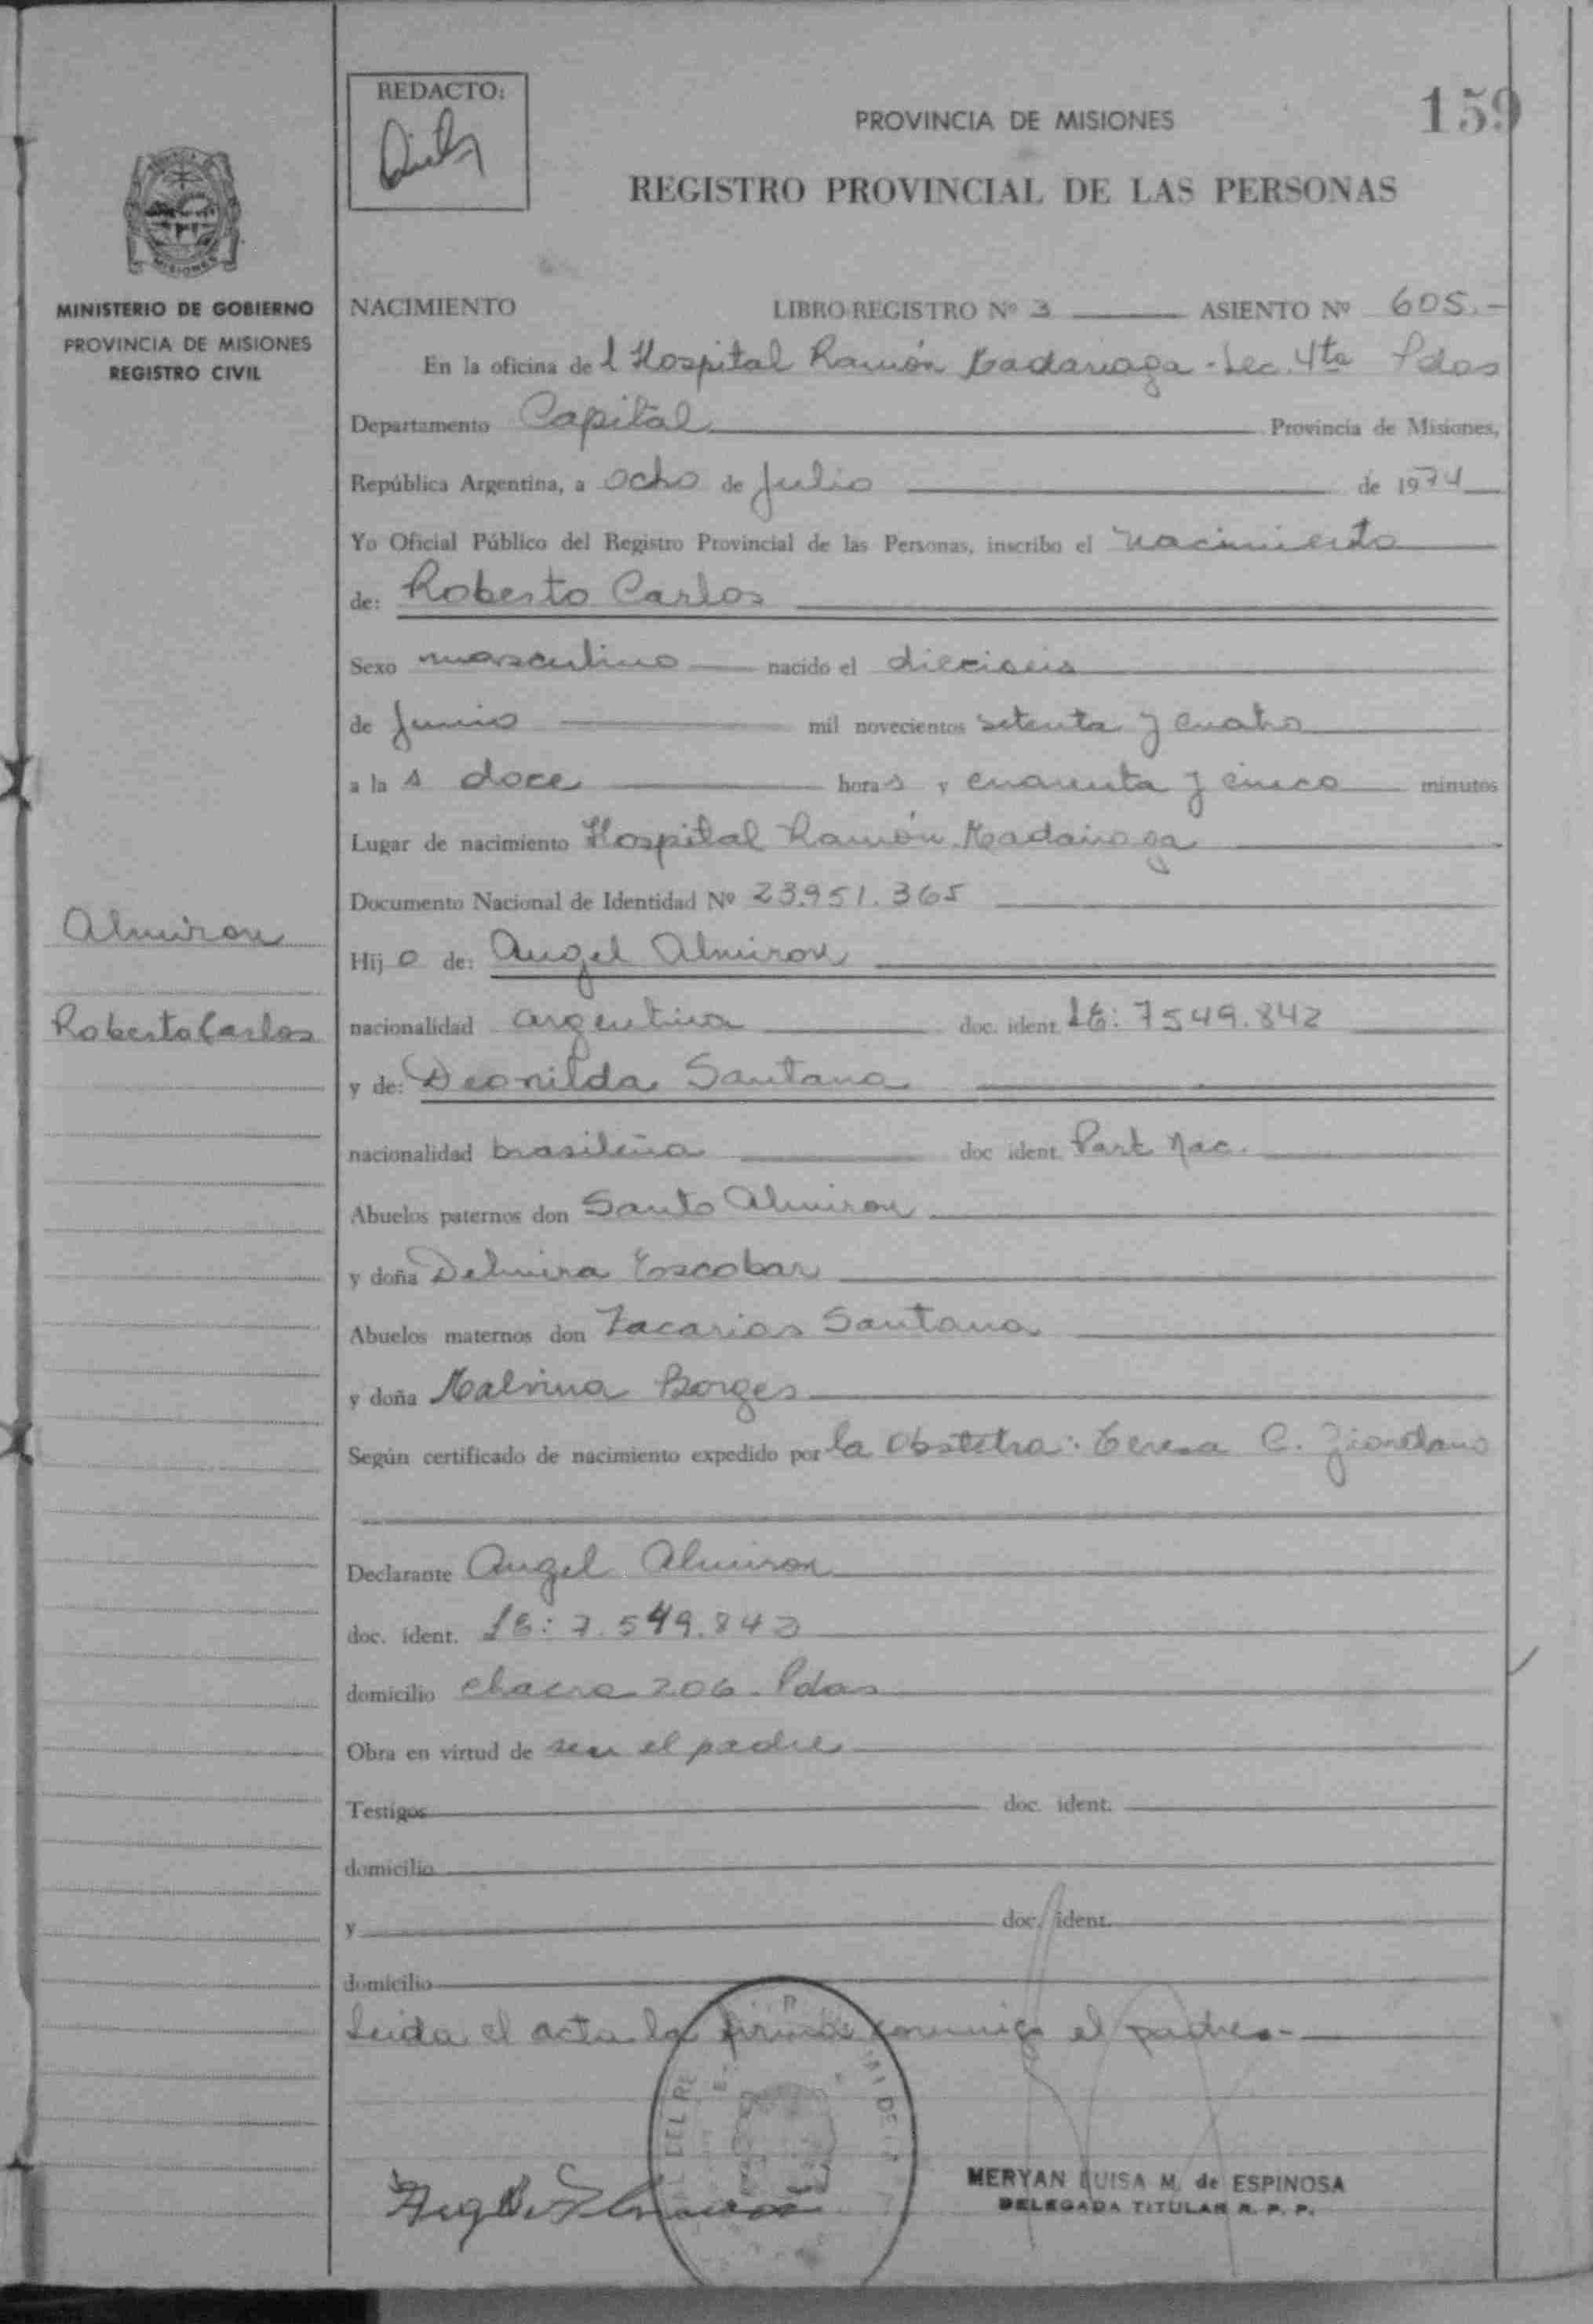 REDACTO:
PROVINCIA DE MISIONES
159
REGISTRO PROVINCIAL DE LAS PERSONAS
MISIONES
MINISTERIO DE GOBIERNO
PROVINCIA DE MISIONES
REGISTRO CIVIL
NACIMIENTO LIBRO REGISTRO Nº 3 ASIENTO Nº 605.-
En la oficina del Hospital Ramón Madariaga - Sec. 4ta Pdas
Departamento Capital Provincia de Misiones,
República Argentina, a ocho de Julio de 1974
Yo Oficial Público del Registro Provincial de las Personas, inscribo el nacimiento
de: Roberto Carlos
Sexo masculino nacido el dieciseis
de Junio mil novecientos setenta y cuatro
a las doce horas y cuarenta y cinco minutos
Lugar de nacimiento Hospital Ramón Madariaga
Documento Nacional de Identidad Nº 23.951.365
Almiron
Hijo de: Angel Almiron
Roberto Carlos
nacionalidad argentina doc. ident. LE: 7549.842
y de: Deonilda Santana
nacionalidad brasileña doc ident. Part Nac.
Abuelos paternos don Santo Almiron
y doña Delmira Escobar
Abuelos maternos don Zacarias Santana
y doña Malvina Borges
Según certificado de nacimiento expedido por la Obstetra: Teresa C. Giordano
Declarante Angel Almiron
doc. ident. LE: 7.549.842
domicilio chacra 206. Pdas
Obra en virtud de ser el padre
Testigos doc. ident.
domicilio
y doc. ident.
domicilio
Leida el acta la firma conmigo el padre.-
MERYAN LUISA M. de ESPINOSA
DELEGADA TITULAR R. P. P.